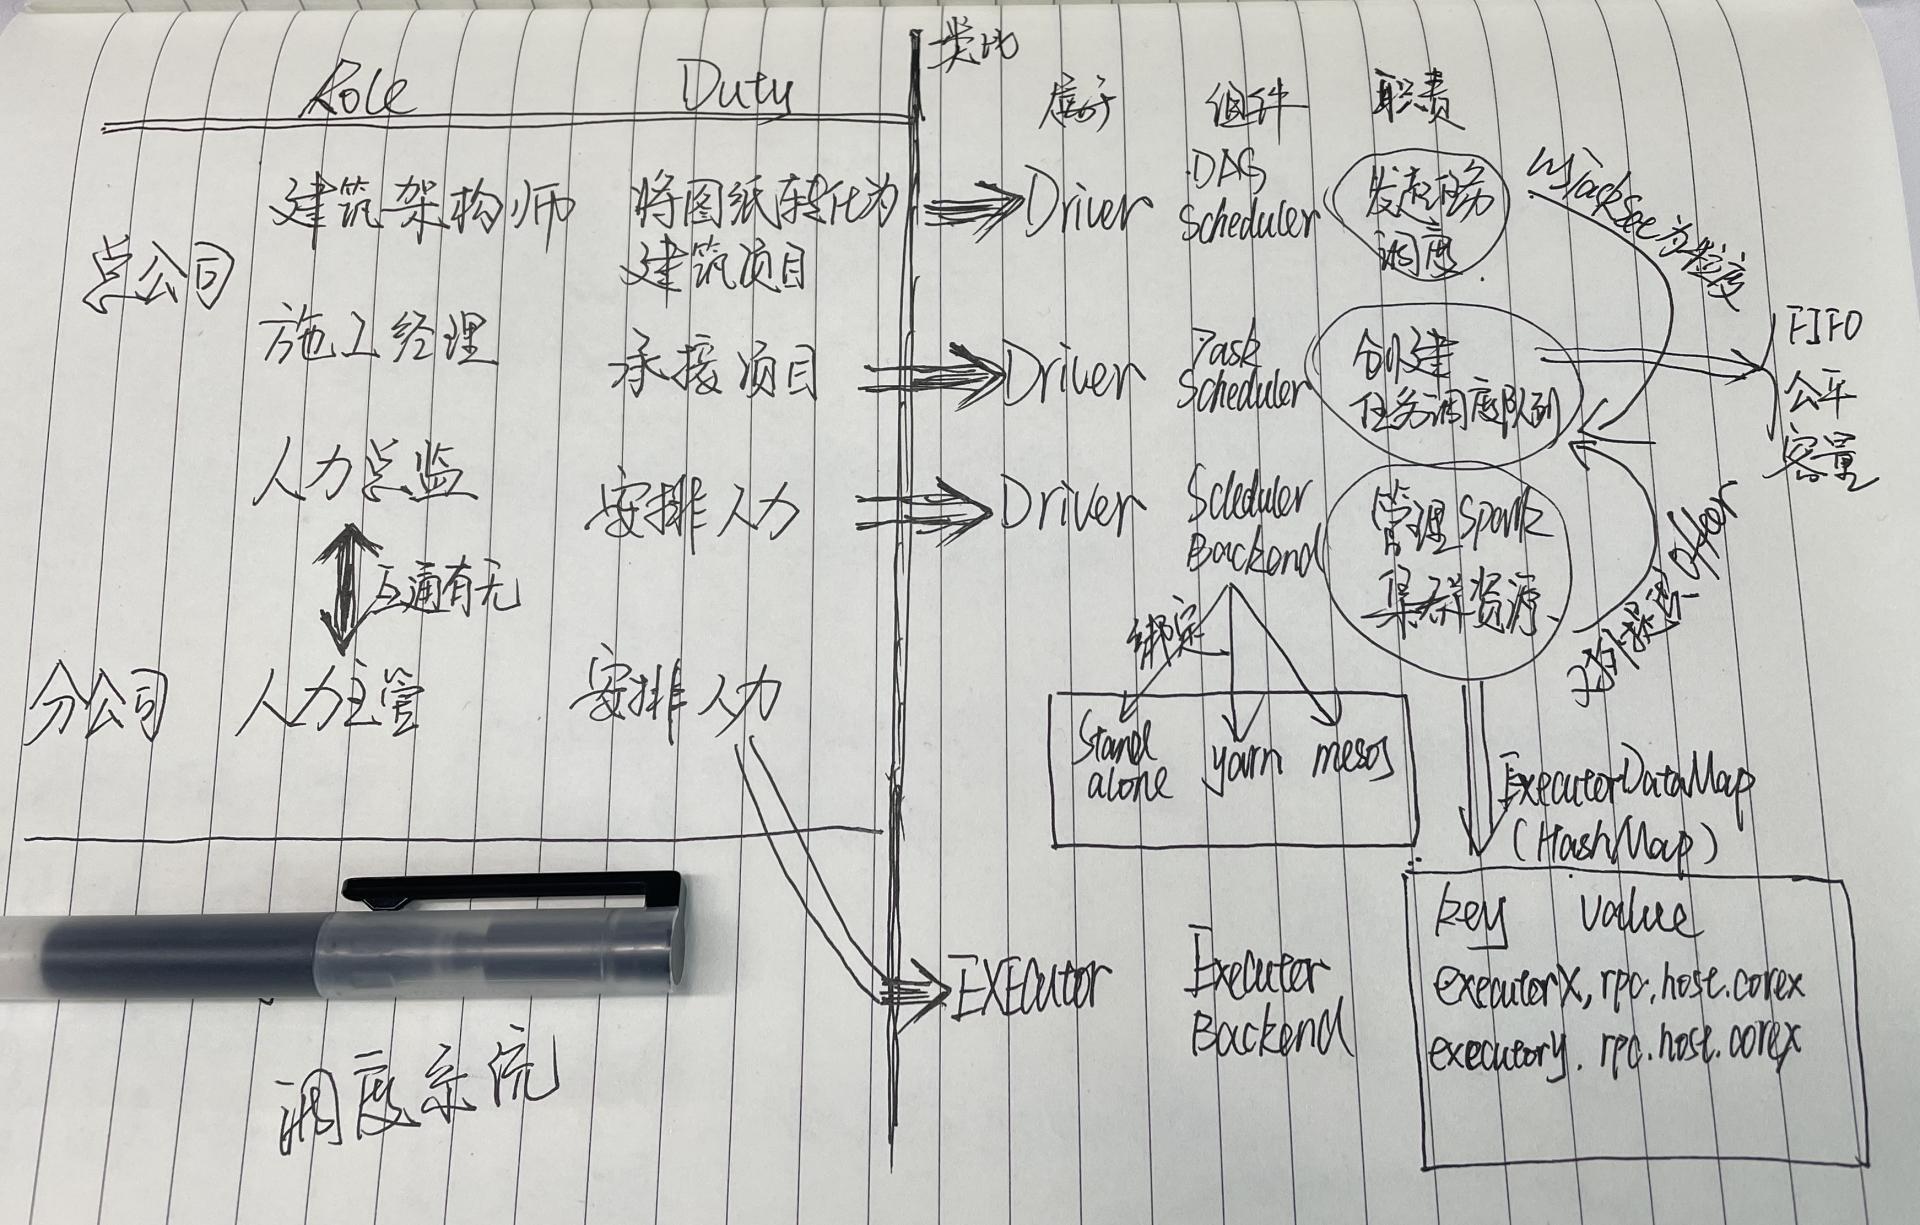 类比
Role Duty
属于 组件 职责
总公司
建筑架构师
将图纸转化为
建筑项目
Driver
DAG
Scheduler
发起任务
调度
以TaskSet为粒度
施工经理
承接项目
Driver
Task
Scheduler
创建
任务调度队列
FIFO
公平
容量
人力总监
安排人力
Driver
Scheduler
Backend
管理Spark
集群资源
对外提供offer
互通有无
绑定
Stand
alone
yarn
mesos
分公司
人力主管
安排人力
ExecutorDataMap
(HashMap)
key value
executorx, rpc.host.corex
executory. rpc.host.corex
EXEcutor
Executor
Backend
调度系统